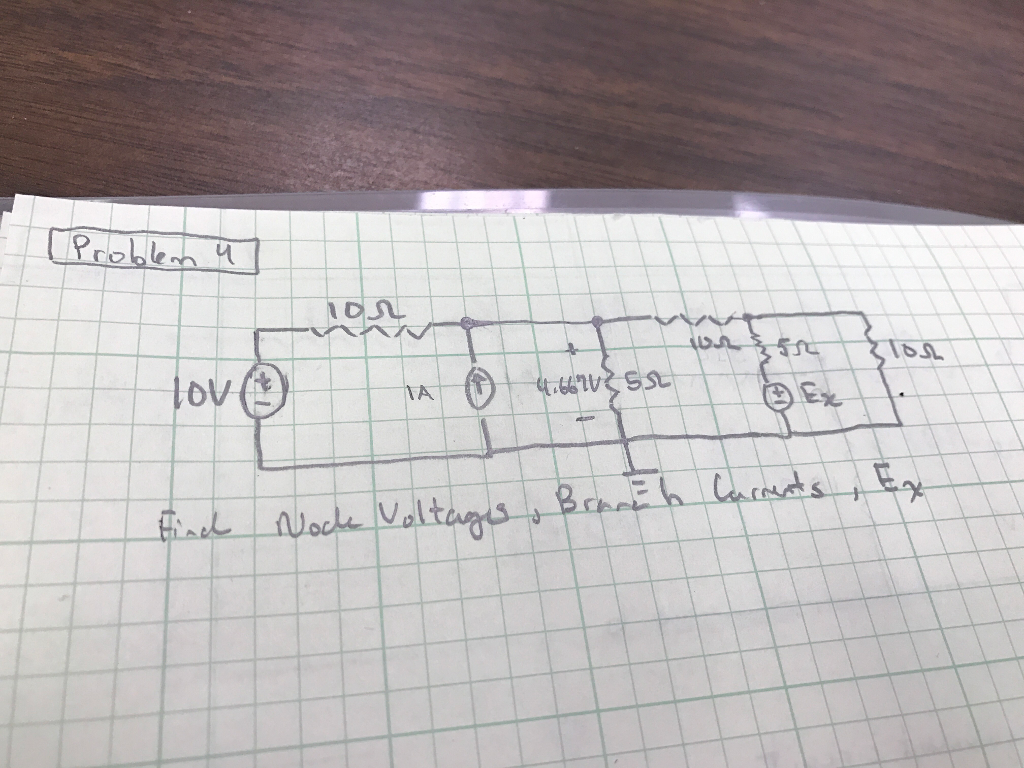 Problem 4
10Ω
10Ω
5Ω
10Ω
10V
+
-
1A
+
4.667V
-
5Ω
+
Ex
Find Node Voltages, Branch Currents, Ex